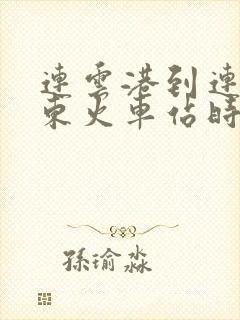 連雲港到連
東火車佔時
孫瑜淼